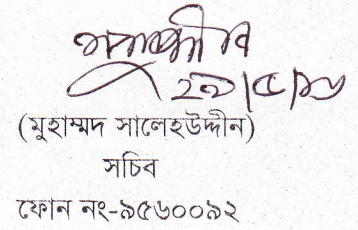 ২৯/৫/১৮
(মুহাম্মদ সালেহউদ্দীন)
সচিব
ফোন নং-৯৫৬০০৯২